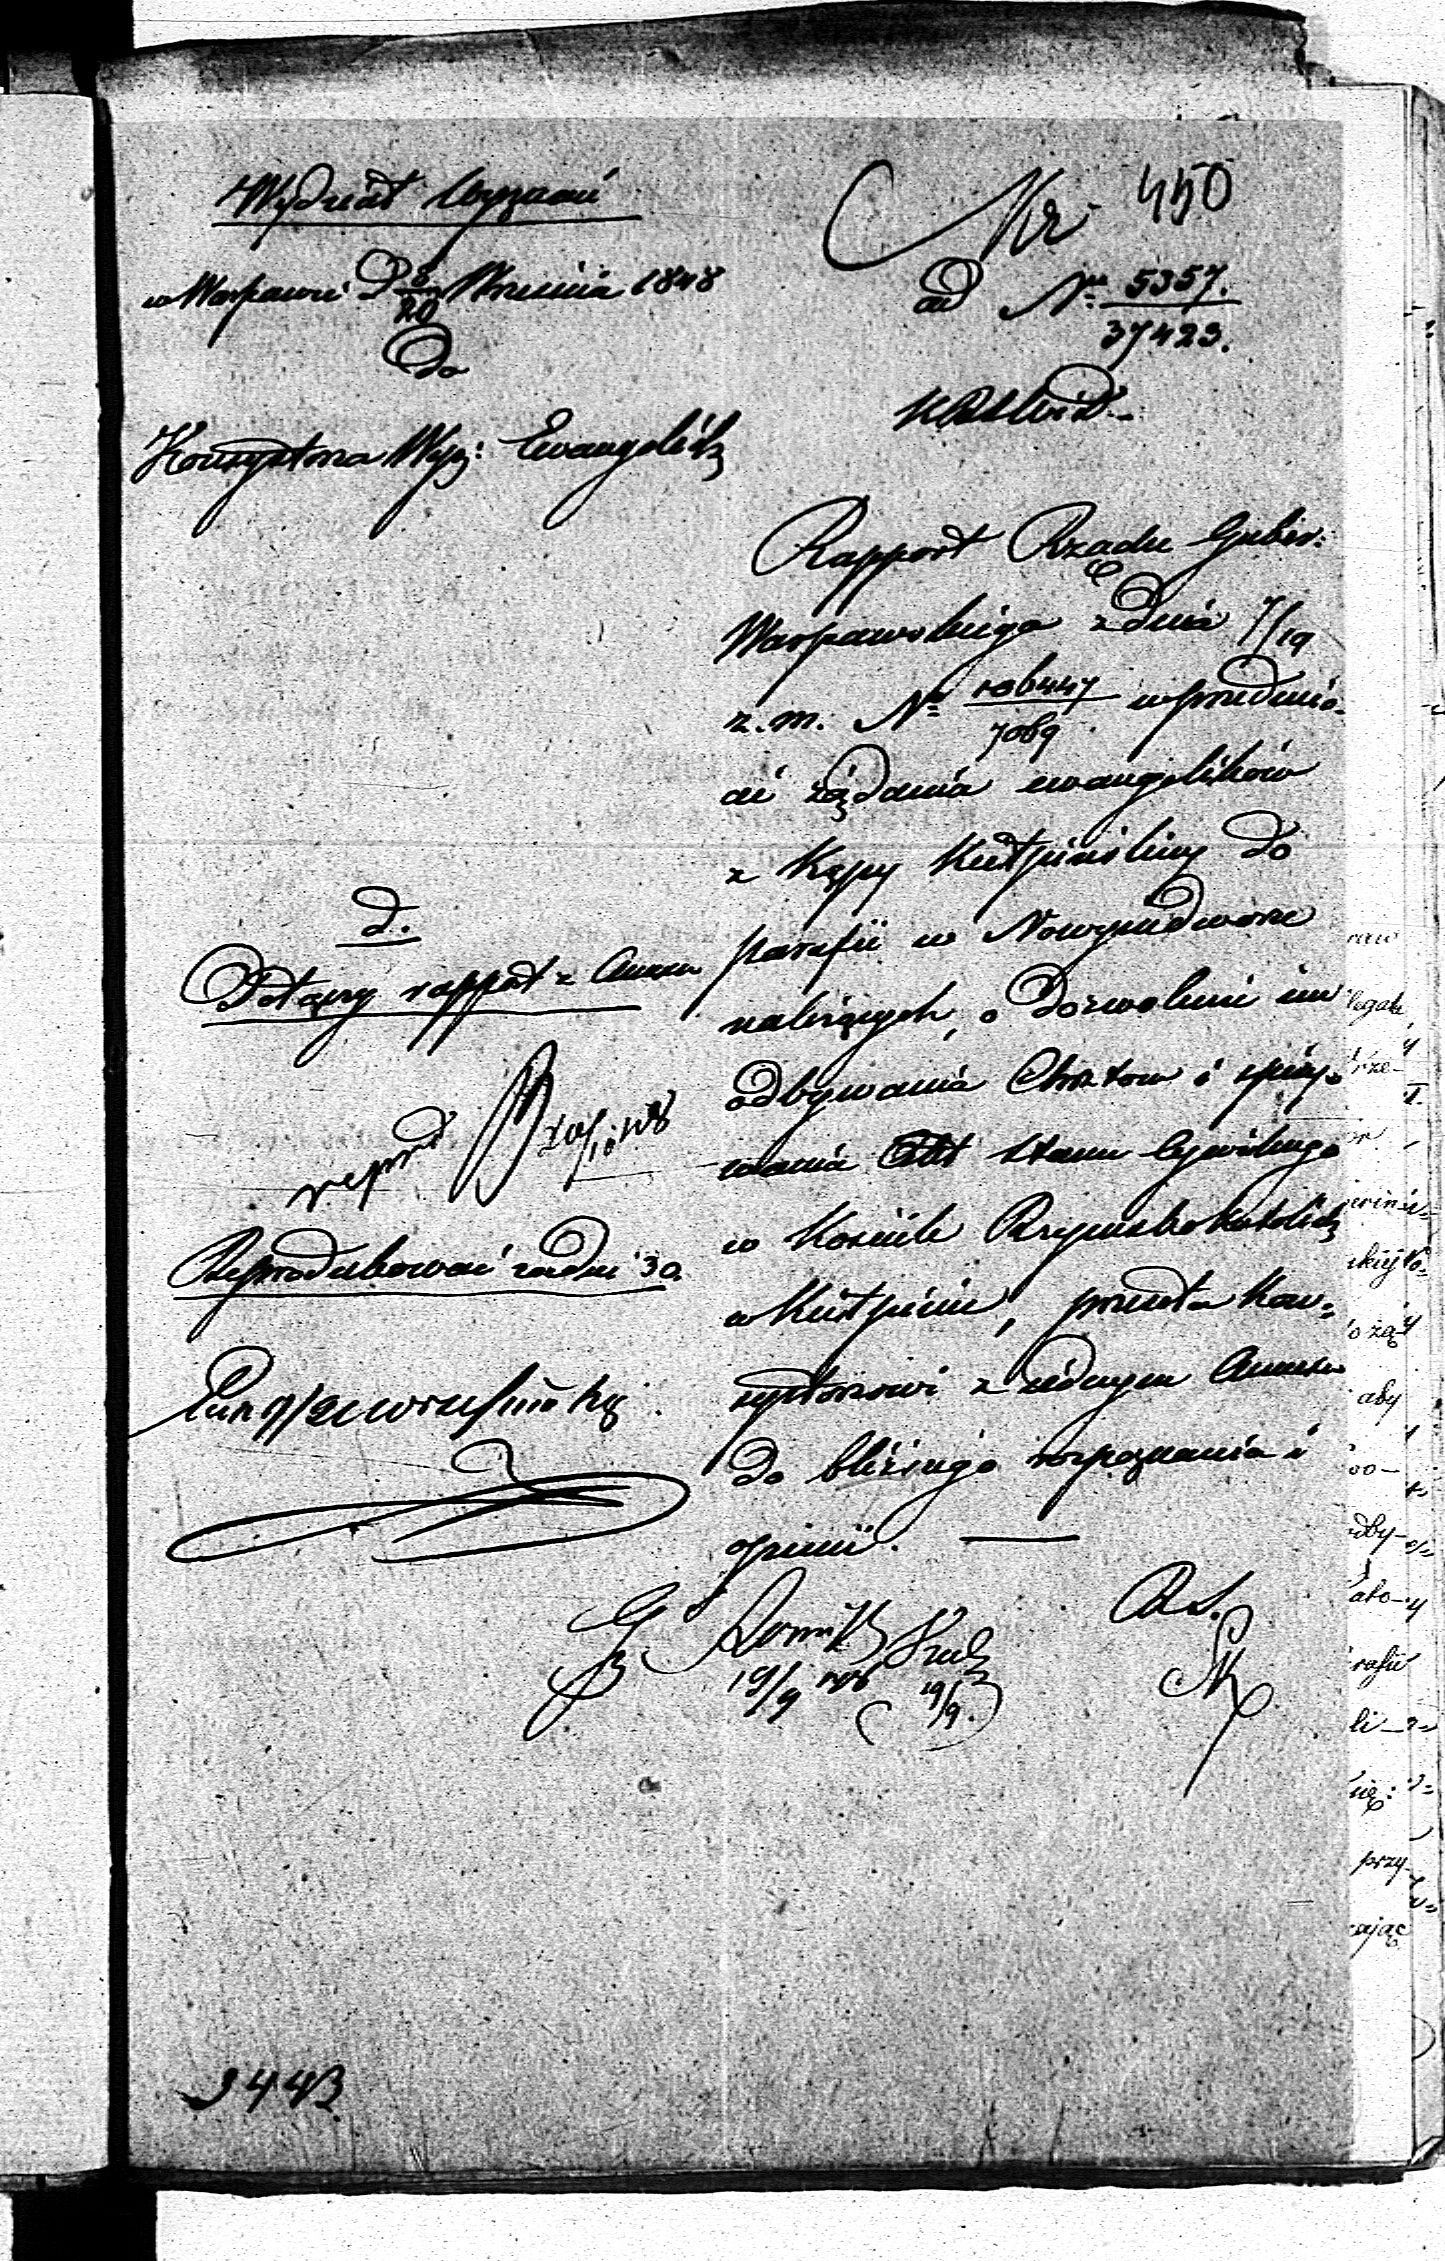 Wydział Wyznań
w Warszawie D 8/20 Września 1848
do
Konsystorza Wyż: Ewangelick
Nr 450
ad Nr 5357./37423.
Rapport Rządu Guber:
Warszawskiego z dnia 7/19
z. m. N 106447/7069 w przedmio-
cie żądania ewangelików
z Kępy Kiełpińskiey do
parafii w Nowymdworze
należących, o dozwolenie im
odbywania Chrztów i spisy-
wania Akt Stanu Cywilnego
w Kościele Rzymsko Katolick
w Kiełpinie, przesyła Kon=
systorzowi z jednym Annexem
do bliższego rozpoznania i
opinii.
d.
Dołączyć rapport z Annex
Reprodukować za dni 30.
19/9
19/9.
9443